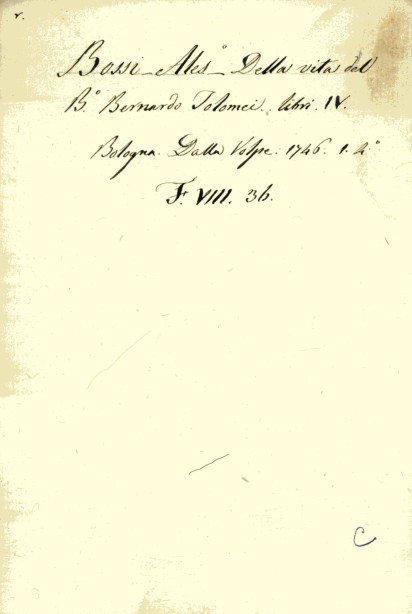 v.
Bossi Ales.º Della vita del
B.º Bernardo Tolomei. libri. IV.
Bologna. Dalla Volpe. 1746. 1. 4º
F. VIII. 36.
C